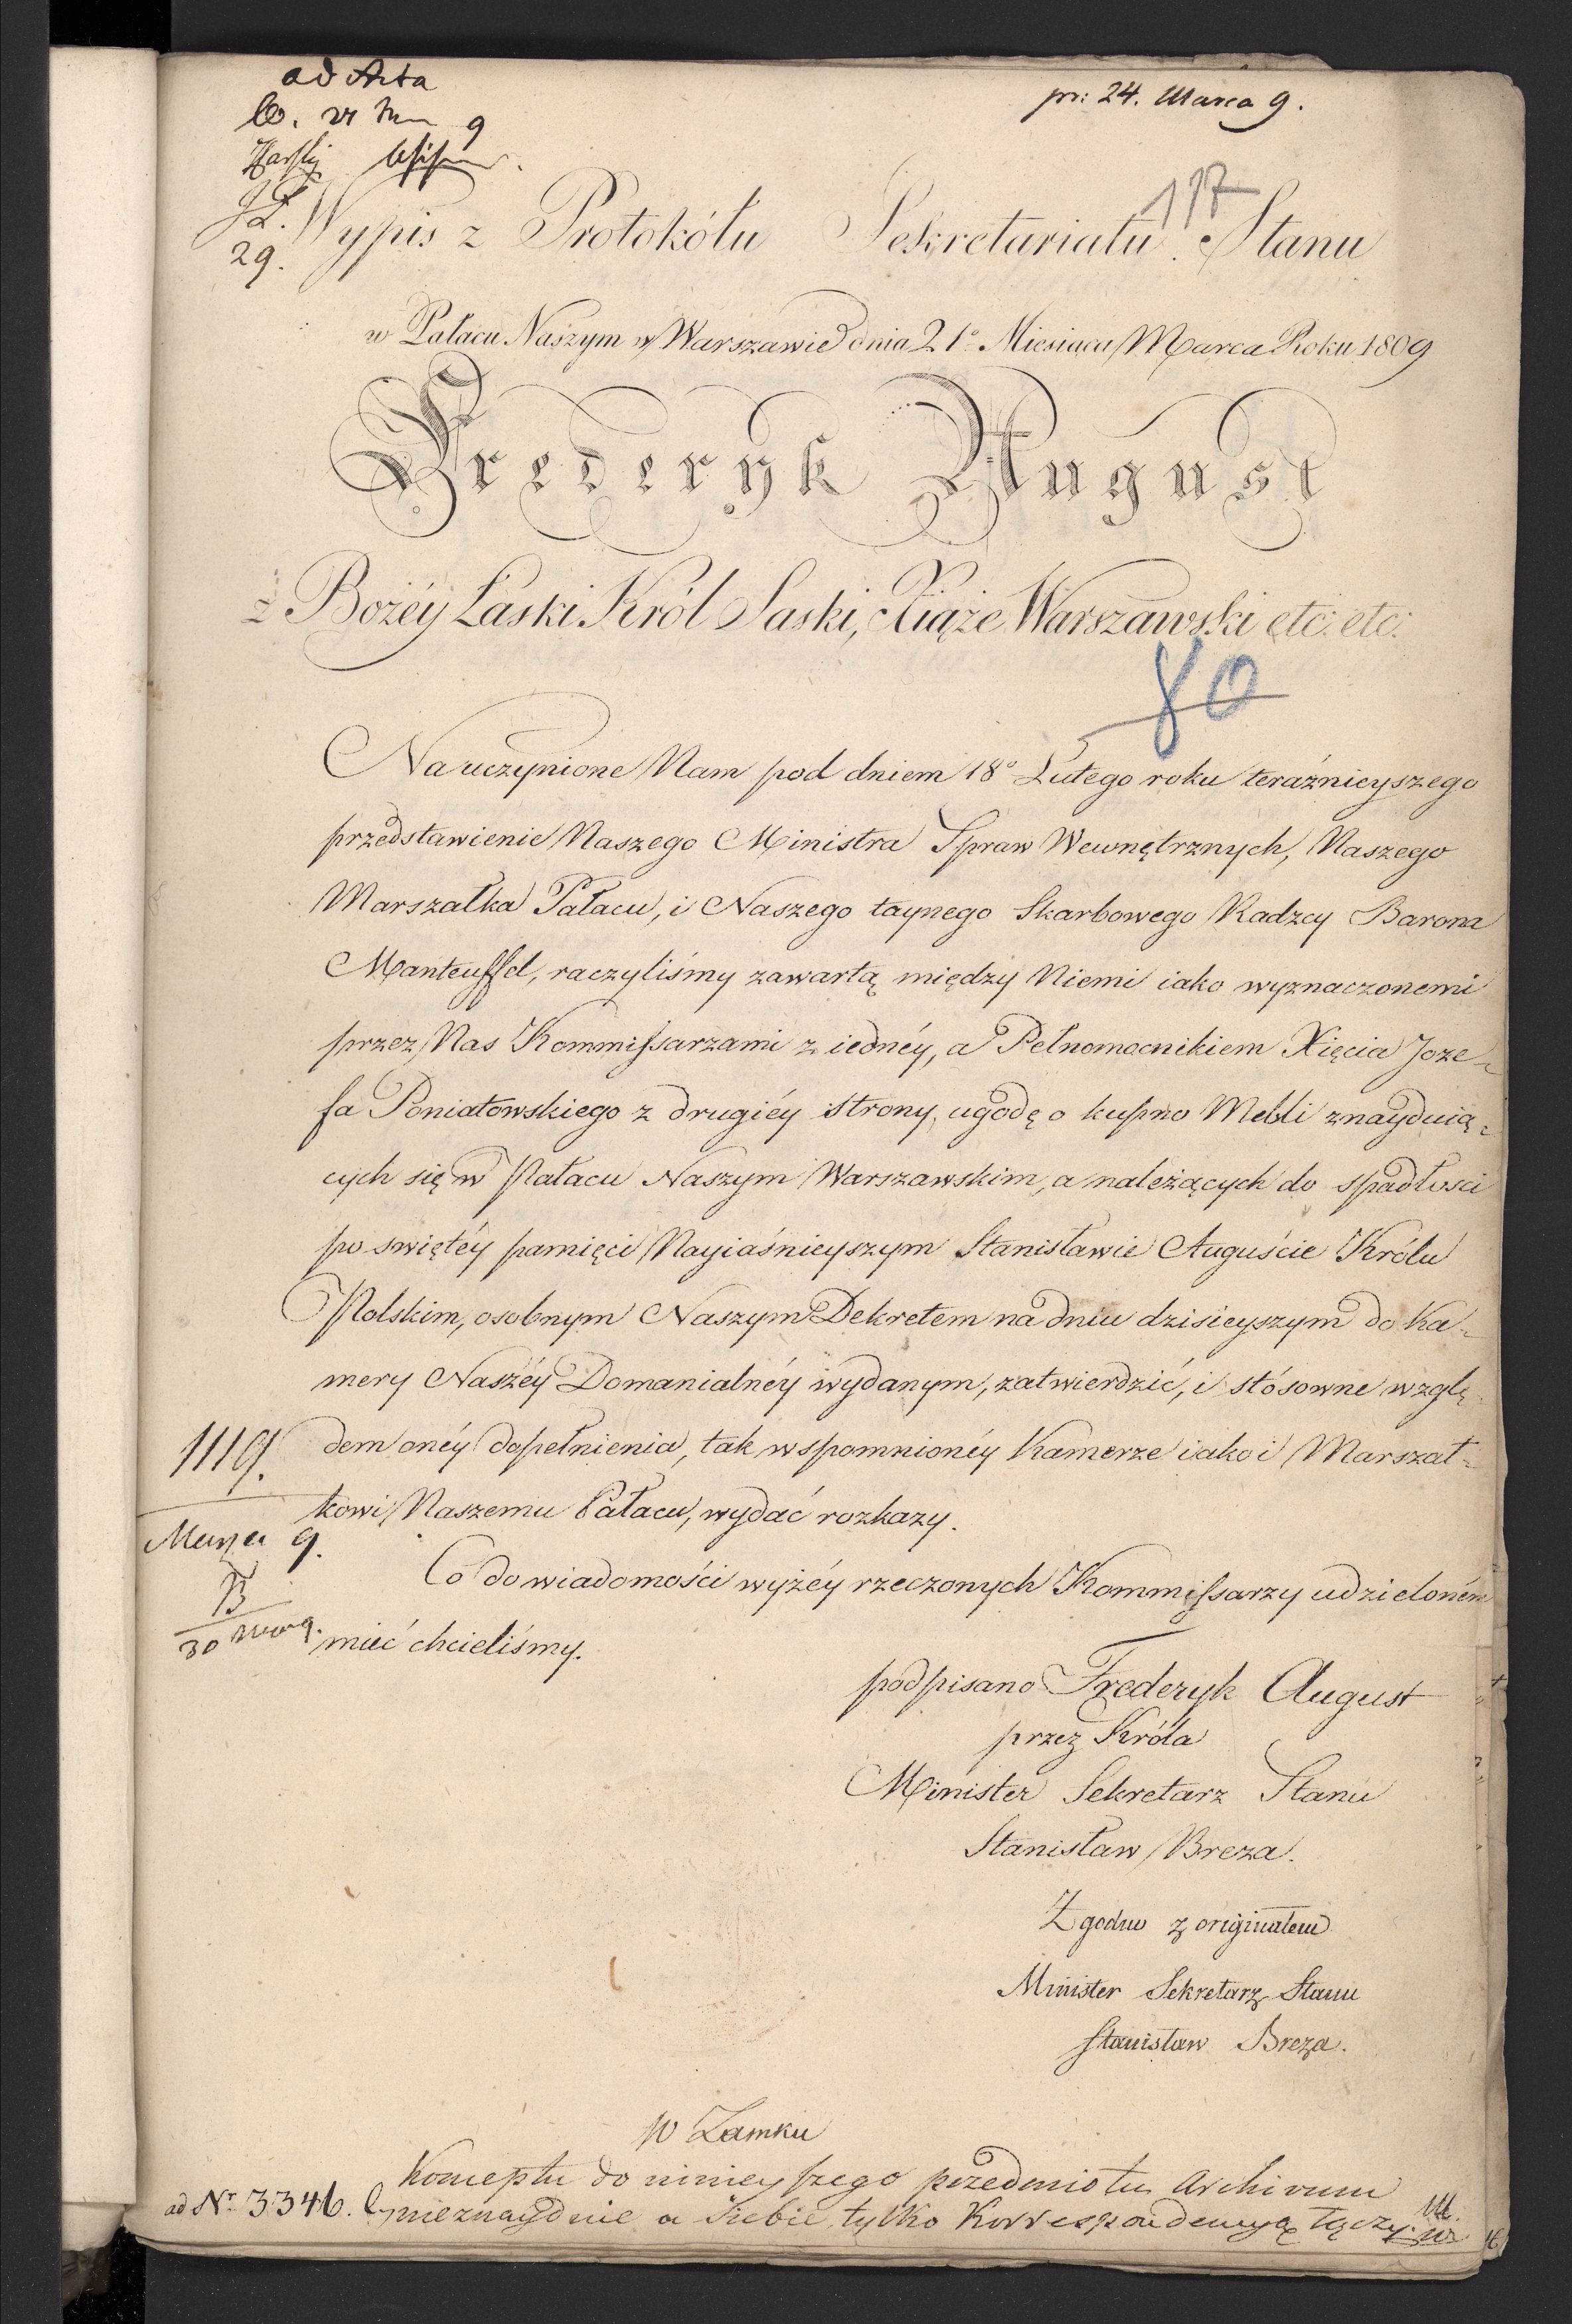 ad Acta
pr: 24. Marca 9.
9
29.
117
Wypis z Protokółu Sekretariatu Stanu
w Pałacu Naszym w Warszawie dnia 21° Miesiąca Marca Roku 1809
Frederyk August
z Bożéy Łaski Król Saski, Xiąże Warszawski etc: etc:
80
Na uczynione Nam pod dniem 18° Lutego roku teraźnieyszego
przedstawienie Naszego Ministra Spraw Wewnętrznych, Naszego
Marszałka Pałacu, i Naszego taynego Skarbowego Radzcy Barona
Manteuffel, raczyliśmy zawartą między Niemi iako wyznaczonemi
przez Nas Kommissarzami z iednéy, a Pełnomocnikiem Xięcia Joze-
fa Poniatowskiego z drugiéy strony, ugodę o kupno Mebli znayduią-
cych się w Pałacu Naszym Warszawskim, a należących do spadłosci
po swiętéy pamięci Nayiaśnieyszym Stanisławie Auguście Królu
Polskim, osobnym Naszym Dekretem na dniu dzisieyszym do Ka-
mery Naszéy Domanialnéy wydanym, zatwierdzić, i stósowne wzglę-
dem onéy dopełnienia, tak wspomnionéy Kamerze iako i Marszał-
kowi Naszemu Pałacu, wydać rozkazy.
1119.
Marca 9.
B
30
Co do wiadomości wyżéy rzeczonych Kommissarzy udzieloném
mieć chcieliśmy.
podpisano Frederyk August
przez Króla
Minister Sekretarz Stanu
Stanisław Breza.
Zgodno z originałem
Minister Sekretarz Stanu
Stanisław Breza.
W Zamku
Konceptu do ninieyszego przedmiotu Archivum
ad Nr 3346. nieznayduie u siebie, tylko Korrespondencyą łączy.